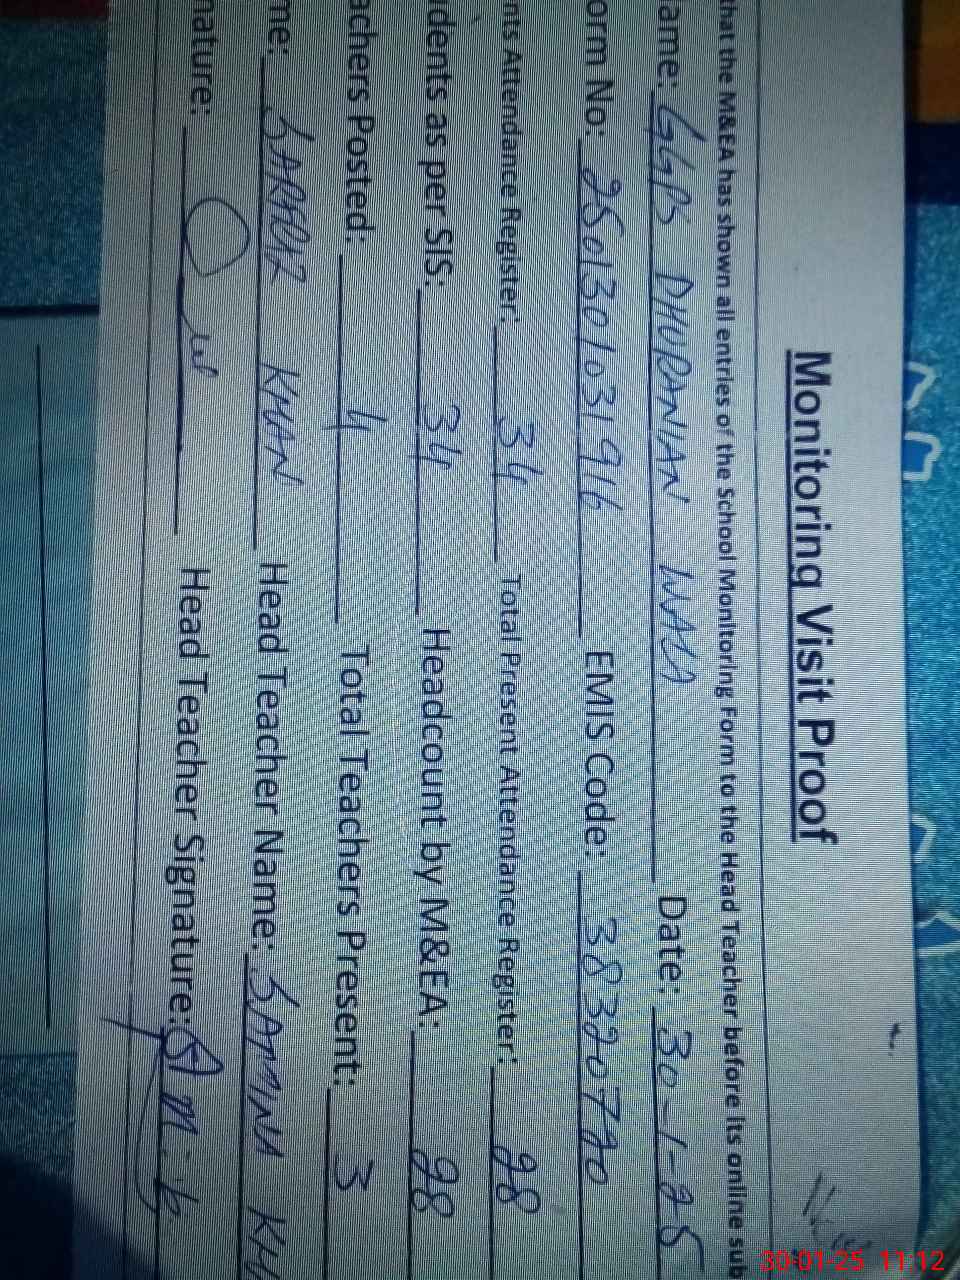 Monitoring Visit Proof
that the M&EA has shown all entries of the School Monitoring Form to the Head Teacher before its online sub
ame: GGPS DHUDANIAN WALA Date: 30-1-25
orm No: 250130103196 EMIS Code: 38320790
nts Attendance Register: 34 Total Present Attendance Register: 28
dents as per SIS: 34 Headcount by M&EA: 28
achers Posted: 4 Total Teachers Present: 3
me: KHAN Head Teacher Name: SAMINA KH
nature: Head Teacher Signature:
30-01-25 11:12